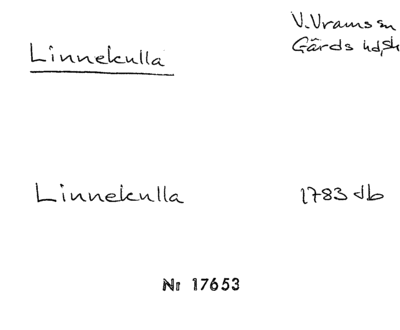 V. Vrams sn
Linnekulla
Gärds hd, Sk
Linnekulla 1783 db
Nr 17653